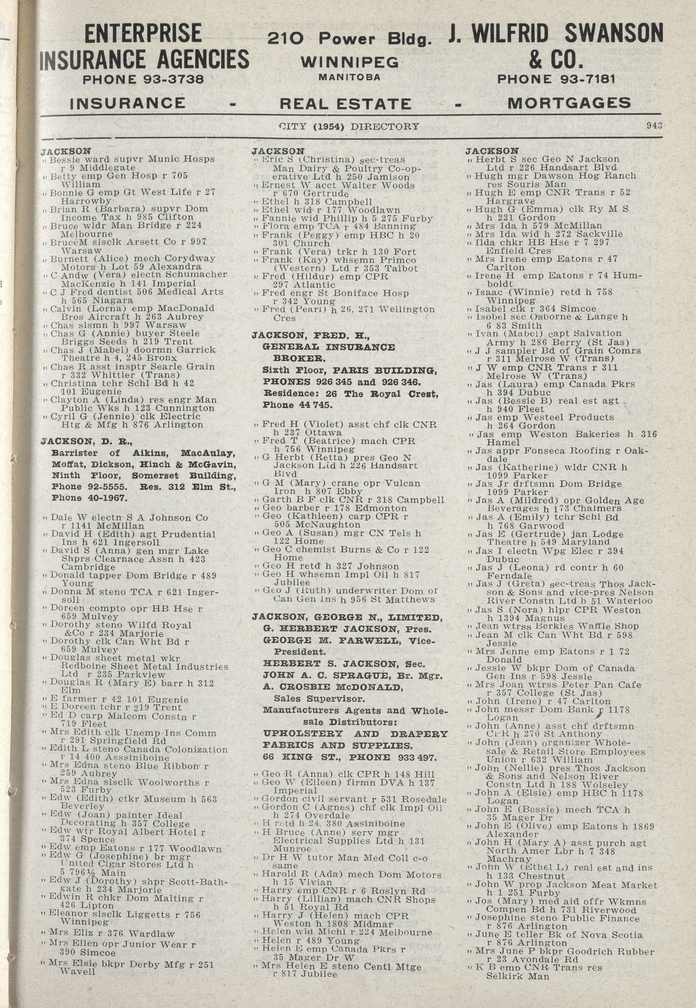 ENTERPRISE
INSURANCE AGENCIES
PHONE 93-3738
INSURANCE -
210 Power Bldg.
WINNIPEG
MANITOBA
REAL ESTATE -
J. WILFRID SWANSON
& CO.
PHONE 93-7181
MORTGAGES
CITY (1954) DIRECTORY 943
JACKSON
" Bessie ward supvr Munic Hosps
r 9 Middlegate
" Betty emp Gen Hosp r 705
William
" Bonnie G emp Gt West Life r 27
Harrowby
" Brian R (Barbara) supvr Dom
Income Tax h 985 Clifton
" Bruce wldr Man Bridge r 224
Melbourne
" BruceM slsclk Arsett Co r 997
Warsaw
" Burnett (Alice) mech Corydway
Motors h Lot 59 Alexandra
" C Andw (Vera) electn Schumacher
MacKenzie h 141 Imperial
" C J Fred dentist 506 Medical Arts
h 565 Niagara
" Calvin (Lorna) emp MacDonald
Bros Aircraft h 263 Aubrey
" Chas slsmn h 997 Warsaw
" Chas G (Annie) buyer Steele
Briggs Seeds h 219 Trent
" Chas J (Mabel) doormn Garrick
Theatre h 4, 245 Bronx
" Chas R asst insptr Searle Grain
r 332 Whittier (Trans)
" Christina tchr Schl Bd h 42
101 Eugenie
" Clayton A (Linda) res engr Man
Public Wks h 123 Cunnington
" Cyril G (Jennie) clk Electric
Htg & Mfg h 876 Arlington
JACKSON, D. R.,
Barrister of Aikins, MacAulay,
Moffat, Dickson, Hinch & McGavin,
Ninth Floor, Somerset Building,
Phone 92-5555. Res. 312 Elm St.,
Phone 40-1967.
" Dale W electn S A Johnson Co
r 1141 McMillan
" David H (Edith) agt Prudential
Ins h 621 Ingersoll
" David S (Anna) gen mgr Lake
Shprs Clearnace Assn h 423
Cambridge
" Donald tapper Dom Bridge r 489
Young
" Donna M steno TCA r 621 Inger-
soll
" Doreen compto opr HB Hse r
659 Mulvey
" Dorothy steno Wilfd Royal
&Co r 234 Marjorie
" Dorothy clk Can Wht Bd r
659 Mulvey
" Douglas sheet metal wkr
Redboine Sheet Metal Industries
Ltd r 235 Parkview
" Douglas R (Mary E) barr h 312
Elm
" E farmer r 42 101 Eugenie
" E Doreen tchr r 219 Trent
" Ed D carp Malcom Constn r
719 Fleet
" Mrs Edith clk Unemp Ins Comm
r 291 Springfield Rd
" Edith L steno Canada Colonization
r 14 400 Assiniboine
" Mrs Edna steno Blue Ribbon r
259 Aubrey
" Mrs Edna slsclk Woolworths r
523 Furby
" Edw (Edith) ctkr Museum h 563
Beverley
" Edw (Joan) painter Ideal
Decorating h 357 College
" Edw wtr Royal Albert Hotel r
374 Spence
" Edw emp Eatons r 177 Woodlawn
" Edw G (Josephine) br mgr
United Cigar Stores Ltd h
5 796½ Main
" Edw J (Dorothy) shpr Scott-Bath-
gate h 234 Marjorie
" Edwin R chkr Dom Malting r
426 Lipton
" Eleanor slsclk Liggetts r 756
Winnipeg
" Mrs Eliz r 376 Wardlaw
" Mrs Ellen opr Junior Wear r
390 Simcoe
" Mrs Elsie bkpr Derby Mfg r 251
Wavell
JACKSON
" Eric S (Christina) sec-treas
Man Dairy & Poultry Co-op-
erative Ltd h 250 Jamison
" Ernest W acct Walter Woods
r 670 Gertrude
" Ethel h 318 Campbell
" Ethel wid r 177 Woodlawn
" Fannie wid Phillip h 5 275 Furby
" Flora emp TCA r 484 Banning
" Frank (Peggy) emp HBC h 20
301 Church
" Frank (Vera) trkr h 130 Fort
" Frank (Kay) whsemn Primco
(Western) Ltd r 353 Talbot
" Fred (Hildur) emp CPR
297 Atlantic
" Fred engr St Boniface Hosp
r 342 Young
" Fred (Pearl) h 26, 271 Wellington
Cres
JACKSON, FRED. H.,
GENERAL INSURANCE
BROKER.
Sixth Floor, PARIS BUILDING,
PHONES 926 345 and 926 346.
Residence: 26 The Royal Crest,
Phone 44 745.
" Fred H (Violet) asst chf clk CNR
h 237 Ottawa
" Fred T (Beatrice) mach CPR
h 756 Winnipeg
" G Herbt (Retta) pres Geo N
Jackson Ltd h 226 Handsart
Blvd
" G M (Mary) crane opr Vulcan
Iron h 807 Ebby
" Garth B F clk CNR r 318 Campbell
" Geo barber r 178 Edmonton
" Geo (Kathleen) carp CPR r
505 McNaughton
" Geo A (Susan) mgr CN Tels h
122 Home
" Geo C chemist Burns & Co r 122
Home
" Geo H retd h 327 Johnson
" Geo H whsemn Impl Oil h 817
Jubilee
" Geo J (Ruth) underwriter Dom of
Can Gen Ins h 956 St Matthews
JACKSON, GEORGE N., LIMITED,
G. HERBERT JACKSON, Pres.
GEORGE M. FARWELL, Vice-
President.
HERBERT S. JACKSON, Sec.
JOHN A. C. SPRAGUE, Br. Mgr.
A. CROSBIE McDONALD,
Sales Supervisor.
Manufacturers Agents and Whole-
sale Distributors:
UPHOLSTERY AND DRAPERY
FABRICS AND SUPPLIES.
66 KING ST., PHONE 933 497.
" Geo R (Anna) clk CPR h 148 Hill
" Geo W (Eileen) firmn DVA h 137
Imperial
" Gordon civil servant r 531 Rosedale
" Gordon C (Agnes) chf clk Impl Oil
h 274 Overdale
" H retd h 24, 380 Assiniboine
" H Bruce (Anne) serv mgr
Electrical Supplies Ltd h 131
Munroe
" Dr H W tutor Man Med Coll c-o
same
" Harold R (Ada) mech Dom Motors
h 15 Vivian
" Harry emp CNR r 6 Roslyn Rd
" Harry (Lillian) mach CNR Shops
h 51 Royal Rd
" Harry J (Helen) mach CPR
Weston h 1808 Midmar
" Helen wid Michl r 224 Melbourne
" Helen r 489 Young
" Helen E emp Canada Pkrs r
35 Mager Dr W
" Mrs Helen E steno Centl Mtge
r 817 Jubilee
JACKSON
" Herbt S sec Geo N Jackson
Ltd r 226 Handsart Blvd
" Hugh mgr Dawson Hog Ranch
res Souris Man
" Hugh E emp CNR Trans r 52
Hargrave
" Hugh G (Emma) clk Ry M S
h 221 Gordon
" Mrs Ida h 579 McMillan
" Mrs Ida wid h 272 Sackville
" Ilda chkr HB Hse r 7 297
Enfield Cres
" Mrs Irene emp Eatons r 47
Carlton
" Irene H emp Eatons r 74 Hum-
boldt
" Isaac (Winnie) retd h 758
Winnipeg
" Isabel clk r 364 Simcoe
" Isobel sec Osborne & Lange h
6 83 Smith
" Ivan (Mabel) capt Salvation
Army h 286 Berry (St Jas)
" J J sampler Bd of Grain Comrs
r 311 Melrose W (Trans)
" J W emp CNR Trans r 311
Melrose W (Trans)
" Jas (Laura) emp Canada Pkrs
h 394 Dubuc
" Jas (Bessie B) real est agt
h 940 Fleet
" Jas emp Westeel Products
h 264 Gordon
" Jas emp Weston Bakeries h 316
Hamel
" Jas appr Fonseca Roofing r Oak-
dale
" Jas (Katherine) wldr CNR h
1099 Parker
" Jas Jr drftsmn Dom Bridge
1099 Parker
" Jas A (Mildred) opr Golden Age
Beverages h 173 Chalmers
" Jas A (Emily) tchr Schl Bd
h 768 Garwood
" Jas E (Gertrude) jan Lodge
Theatre h 549 Maryland
" Jas I electn Wpg Elec r 394
Dubuc
" Jas J (Leona) rd contr h 60
Ferndale
" Jas J (Greta) sec-treas Thos Jack-
son & Sons and vice-pres Nelson
River Constn Ltd h 51 Waterloo
" Jas S (Nora) hlpr CPR Weston
h 1394 Magnus
" Jean wtrss Berkles Waffle Shop
" Jean M clk Can Wht Bd r 598
Jessie
" Mrs Jenne emp Eatons r 1 72
Donald
" Jessie W bkpr Dom of Canada
Gen Ins r 598 Jessie
" Mrs Joan wtrss Peter Pan Cafe
r 357 College (St Jas)
" John (Irene) r 47 Carlton
" John messr Dom Bank r 1178
Logan
" John (Anne) asst chf drftsmn
h 270 St Anthony
" John (Jean) organizer Whole-
sale & Retail Store Employees
Union r 632 William
" John (Nellie) pres Thos Jackson
& Sons and Nelson River
Constn Ltd h 188 Wolseley
" John A (Elsie) emp HBC h 1178
Logan
" John E (Bessie) mech TCA h
35 Mager Dr
" John E (Olive) emp Eatons h 1869
Alexander
" John H (Mary A) asst purch agt
North Amer Lbr h 7 348
Machray
" John W (Ethel L) real est and ins
h 133 Chestnut
" John W prop Jackson Meat Market
h 1 251 Furby
" Jos (Mary) med aid offr Wkmns
Compen Bd h 731 Riverwood
" Josephine steno Public Finance
r 876 Arlington
" June E teller Bk of Nova Scotia
r 876 Arlington
" Mrs June P bkpr Goodrich Rubber
r 23 Avondale Rd
" K B emp CNR Trans res
Selkirk Man